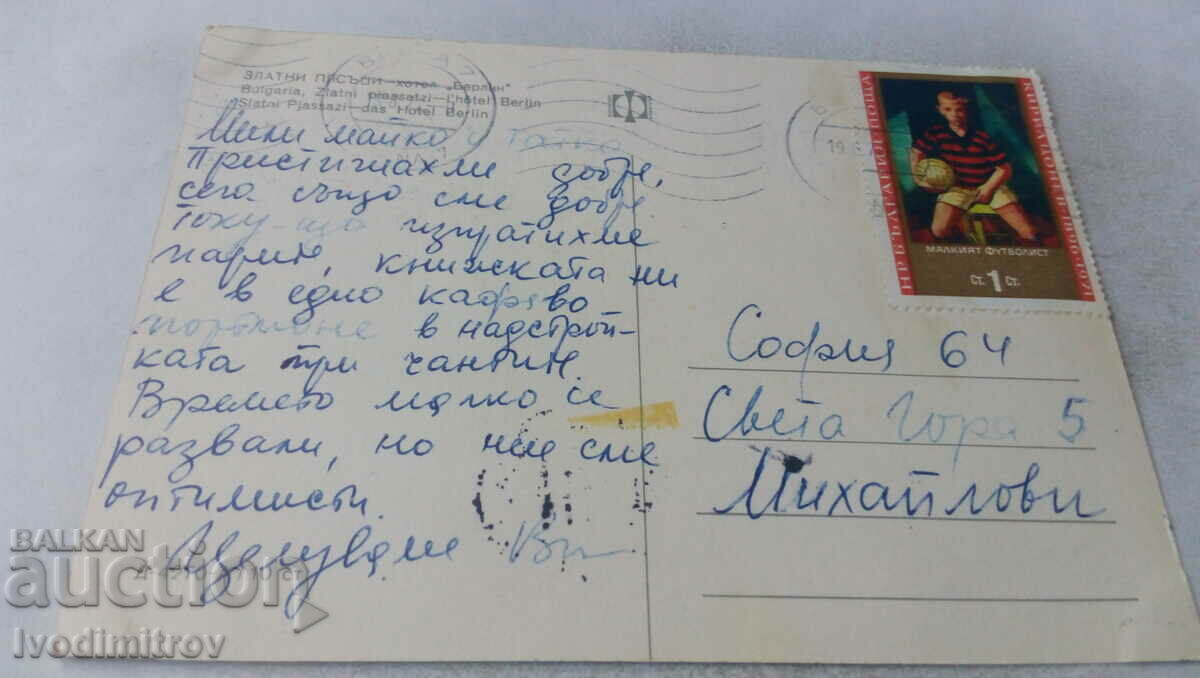 ЗЛАТНИ ПЯСЪЦИ—хотел „Берлин"
Bulgaria, Zlatni piassatzi—l'hôtel Berlin
Slatni Pjassazi—das Hotel Berlin
Мили майко и Татко
Пристигнахме добре,
сега също сме добре.
Току-що изпратихме
парите, книжката ни
е в едно кафяво
портмоне в надстрой-
ката при чантите.
Времето малко се
развали, но ние сме
оптимисти.
Целуваме Ви
София 64
Света Гора 5
Михайлови
НР БЪЛГАРИЯ ПОЩА
КИРИЛ ЦОНЕВ 1896-1971
МАЛКИЯТ ФУТБОЛИСТ
СТ. 1 СТ.
19.6
BALKAN
auction
Ivodimitrov